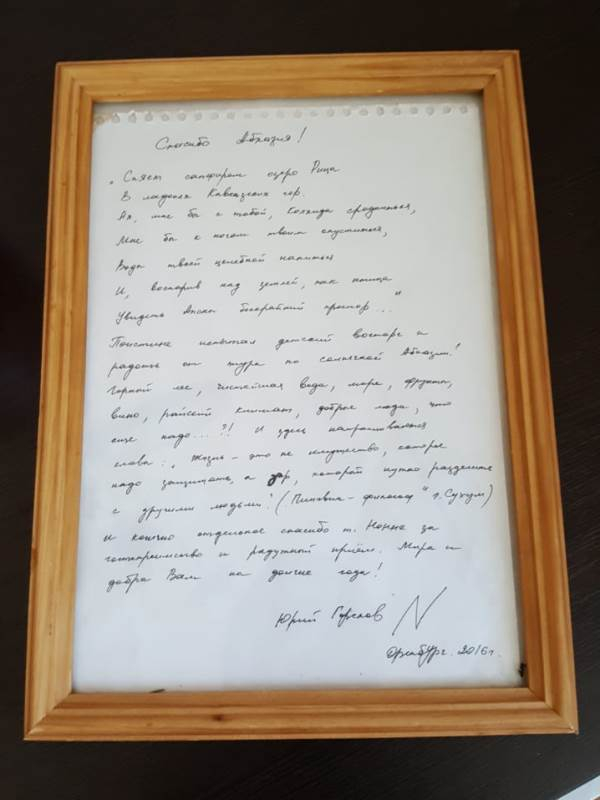 Спасибо Абхазия!
„Спят сапфиром озеро Рица
В ладонях Кавказских гор.
Ах, мне бы к тобой, Колхида сродниться,
Мне бы к ногам твоим опуститься,
Воды твоей целебной напиться
И, воспарив над землёй, как птица
Увидеть Апсны бескрайний простор..."
Поистине испытал детский восторг и
радость от тура по солнечной Абхазии!
Горный лес, чистейшая вода, море, фрукты,
вино, райский климат, добрые люди, что
еще надо...?! И здесь напрашиваются
слова: „Жизнь – это не имущество, которое
надо защищать, а дар, который нужно разделить
с другими людьми!" ( - философ " г. Сухум)
И конечно отдельное спасибо т. Нонне за
гостеприимство и радушный приём. Мира и
добра Вам на долгие года!
Юрий
Оренбург. 2016г.